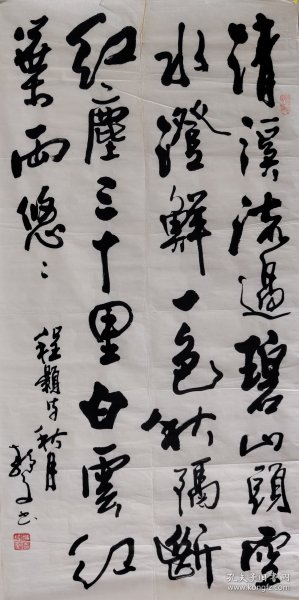 清溪流过碧山头空
水澄鲜一色秋隔断
红尘三十里白云红
叶两悠〻
程颢诗秋月
书
孔夫子旧书网